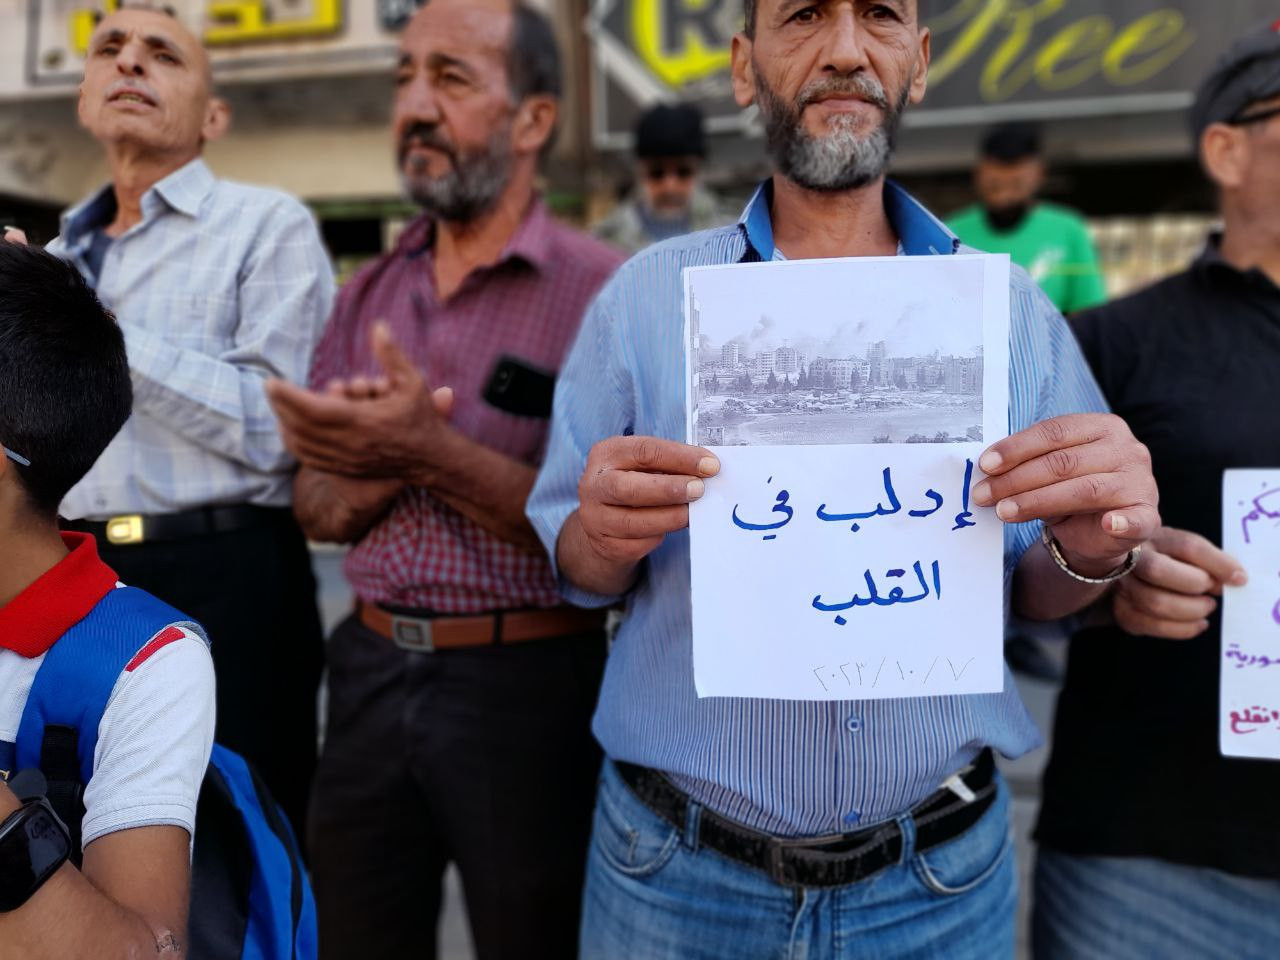 Ree
إدلب في
القلب
٢٠٢٣/١٠/٧
سورية